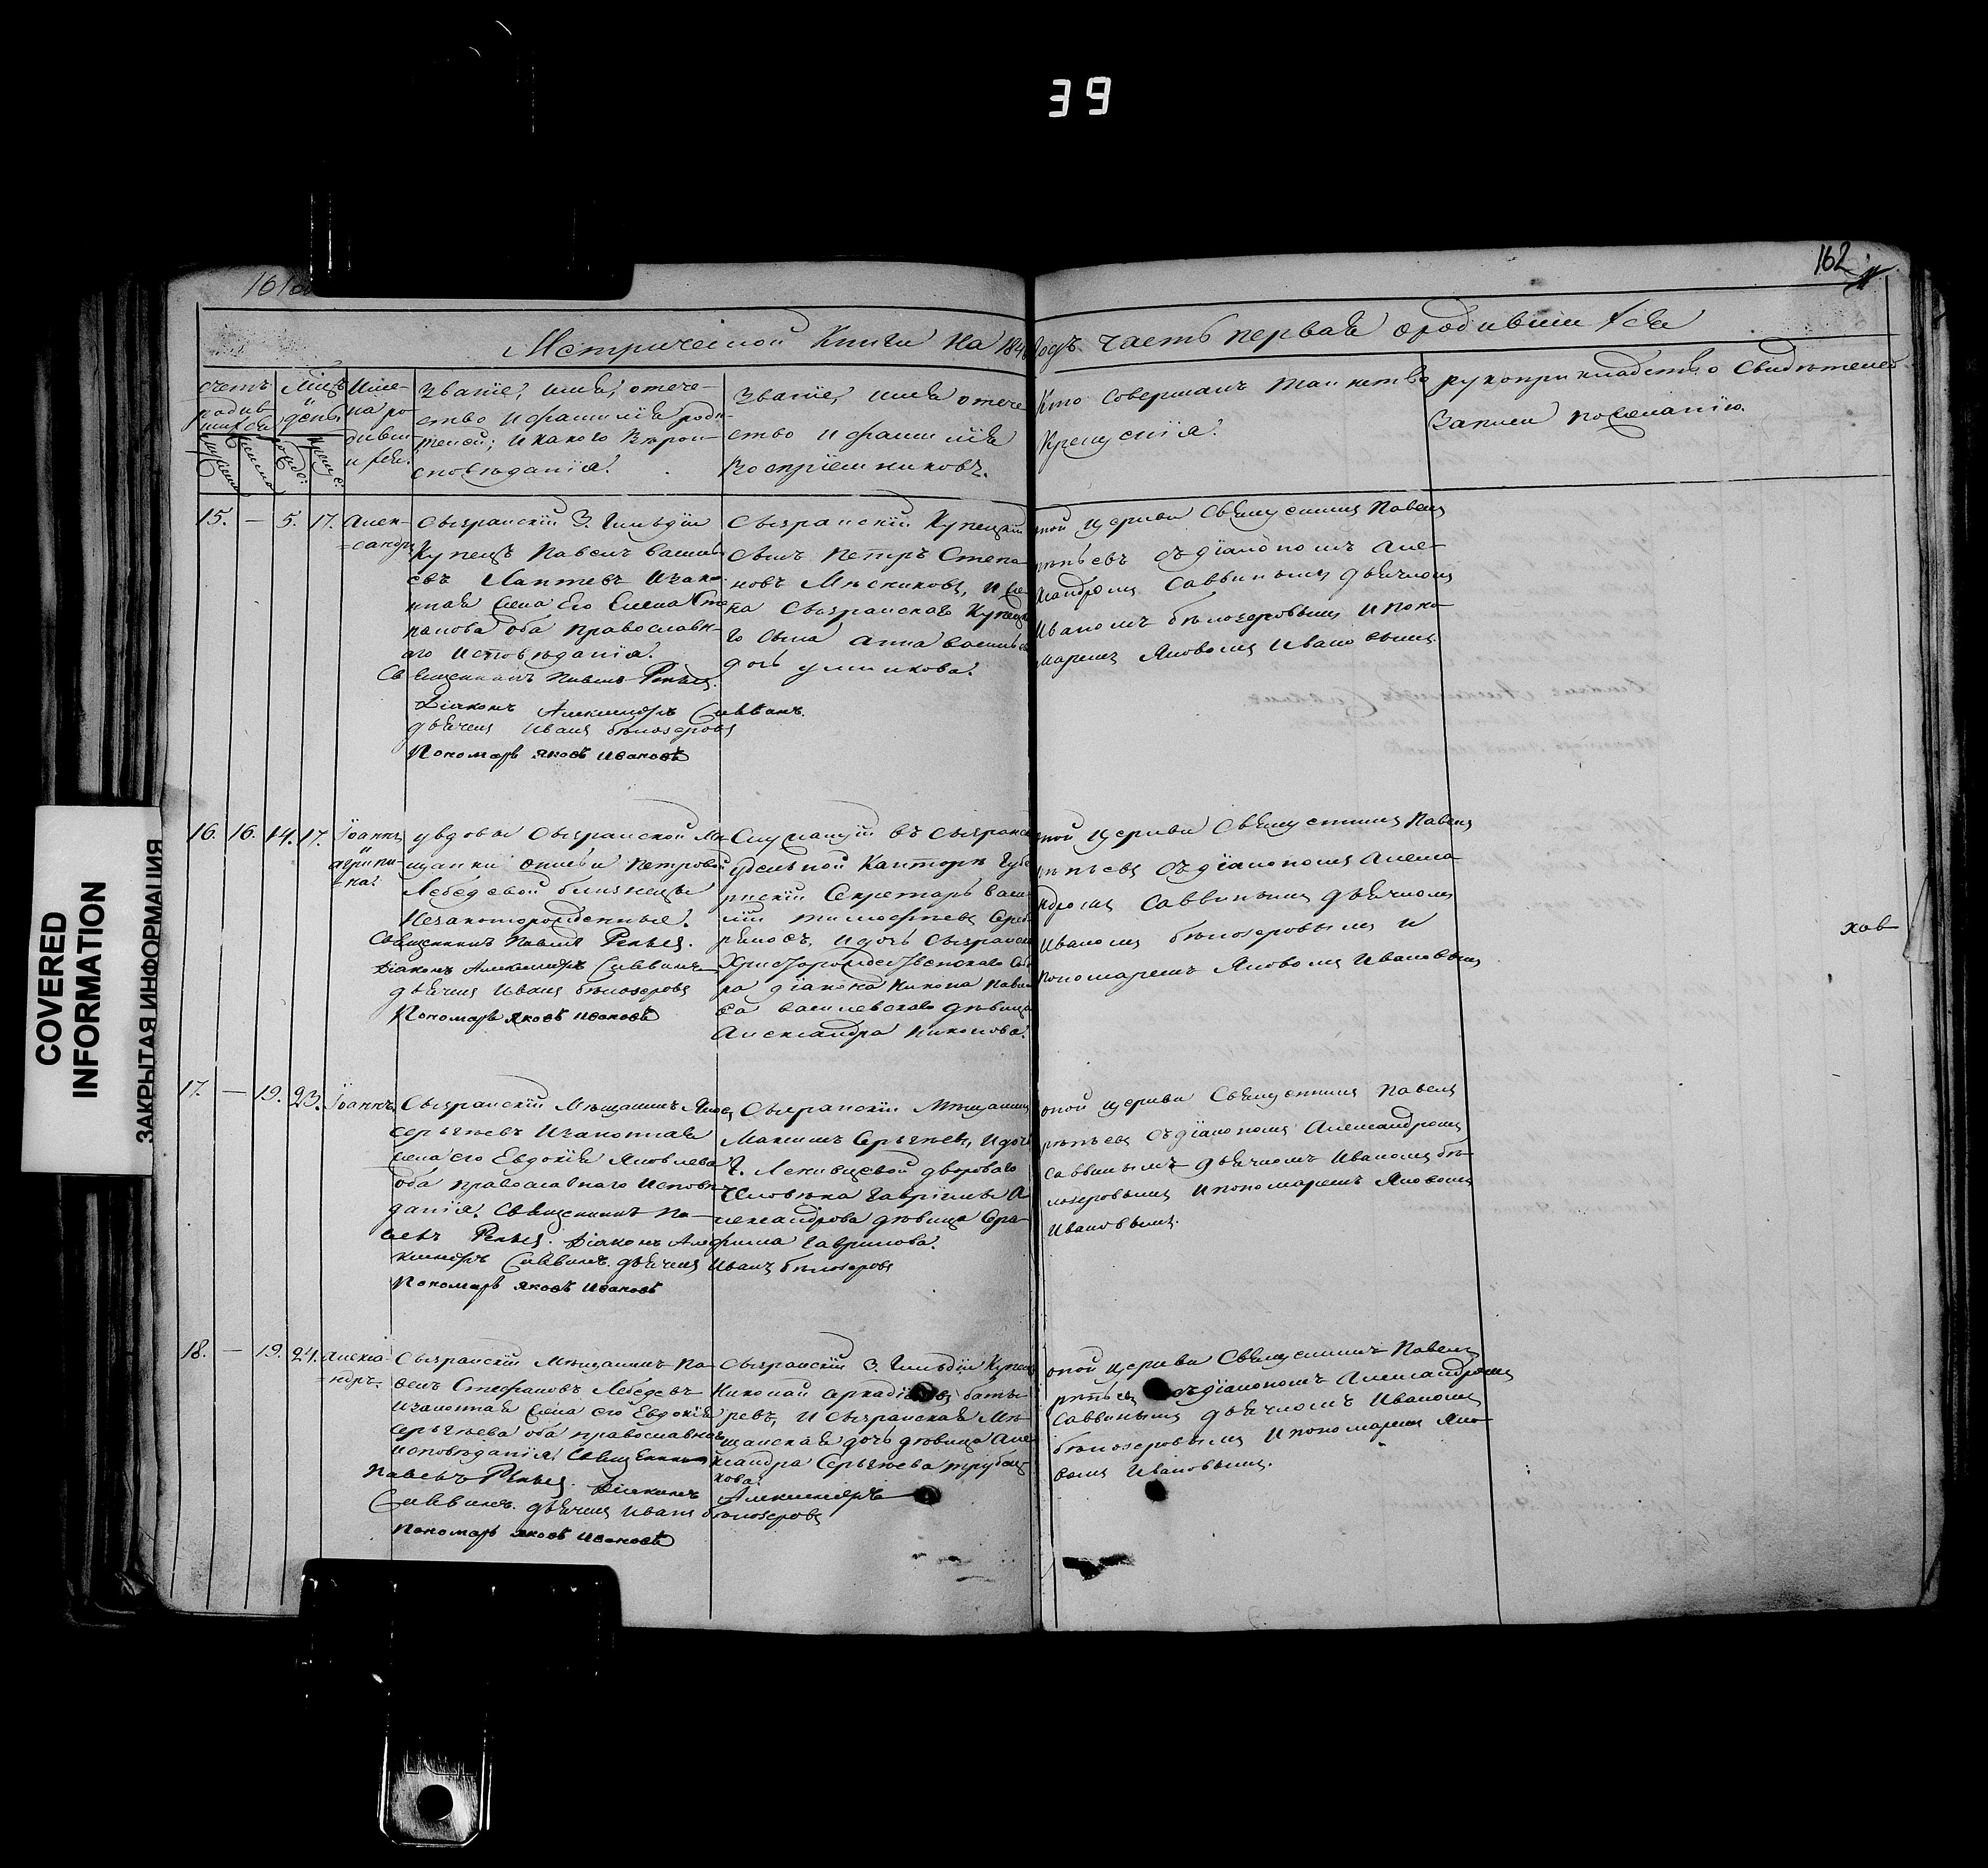 39
162
Метрической Книги на 184 годъ часть первая о родившихся
счетъ родившихся
мѣсяцъ и день
Имена родившихся
Званіе, имя, отечество и фамилія родителей; и какого вѣроисповѣданія.
Званіе, имя отечество и фамилія воспріемниковъ.
Кто совершалъ таинство крещенія.
рукоприкладство свидѣтелей записи по желанію.
15. — 5. 17. Александръ
Сызранскій 3. Гильдіи
Купецъ Павелъ Василь
евъ Лаптевъ и закон
ная жена его Елена Сте
панова оба православн
аго исповѣданія.
Священникъ Павелъ
Діаконъ Александръ Саввинъ.
дьячекъ Иванъ бѣлозеровъ
Пономарь Яковъ Ивановъ
Сызранскій Купецкій
сынъ Петръ Степа
новъ Мясниковъ, и же
на Сызранскаго Купецка
го сына Анна Василье
ва
оной церкви Священникъ Павелъ
съ діакономъ Але
ксандромъ Саввинымъ дьячкомъ
Иваномъ бѣлозеровымъ и поно
маремъ Яковомъ Ивановымъ.
16. 16. 14. 17. Іоаннъ и агрипи
на.
у вдовы Сызранской Мѣ
щанки Петровой
Лебедевой близнецы
незаконорожденные.
Священникъ Павелъ
Діаконъ Александръ Саввинъ
дьячекъ Иванъ бѣлозеровъ
Пономарь Яковъ Ивановъ
Служащій въ Сызранск
удельной Канторѣ Губе
рнскій Секретарь Васи
лій Тимофѣевъ
и дочь Сызранск
Христорождественскаго Собо
ра діакона Никона
Василевскаго дѣвица
Александра Никонова.
оной церкви Священникъ Павелъ
съ діакономъ Алекса
ндромъ Саввинымъ дьячкомъ
Иваномъ бѣлозеровымъ и
пономаремъ Яковомъ Ивановымъ
хов
17. — 19. 23. Іоаннъ
Сызранскій Мѣщанинъ
Сергѣевъ и законная
жена его Евдокія Яковлева
оба православнаго исповѣ
данія. Священникъ Па
велъ Діаконъ Але
ксандръ Саввинъ. дьячекъ Иванъ бѣлозеровъ
Пономарь Яковъ Ивановъ
Сызранскій Мѣщанинъ
Максимъ Сергѣевъ, и дочь
Г. двороваго
человѣка Гаврилы А
лександрова дѣвица Сера
фима Гаврилова.
оной церкви Священникъ Павелъ
съ діакономъ Александромъ
Саввинымъ дьячкомъ Иваномъ бѣ
лозеровымъ и пономаремъ Яковомъ
Ивановымъ.
18. — 19. 24. Алекса
ндръ.
Сызранскій Мѣщанинъ Па
велъ Стефановъ Лебедевъ
и законная жена его Евдокія
Сергѣева оба православнаго
исповѣданія. Священникъ
Павелъ Діаконъ Александръ
Саввинъ. дьячекъ Иванъ бѣлозеровъ
Пономарь Яковъ Ивановъ
Сызранскій 3. Гильдіи Купецъ
Николай Аркадіевъ баты
ревъ, и Сызранская Мѣ
щанская дочь дѣвица Але
ксандра Сергѣева
оной церкви Священникъ Павелъ
съ діакономъ Александромъ
Саввинымъ дьячкомъ Иваномъ
бѣлозеровымъ и пономаремъ Яко
вомъ Ивановымъ.
COVERED
INFORMATION
ЗАКРЫТАЯ ИНФОРМАЦИЯ